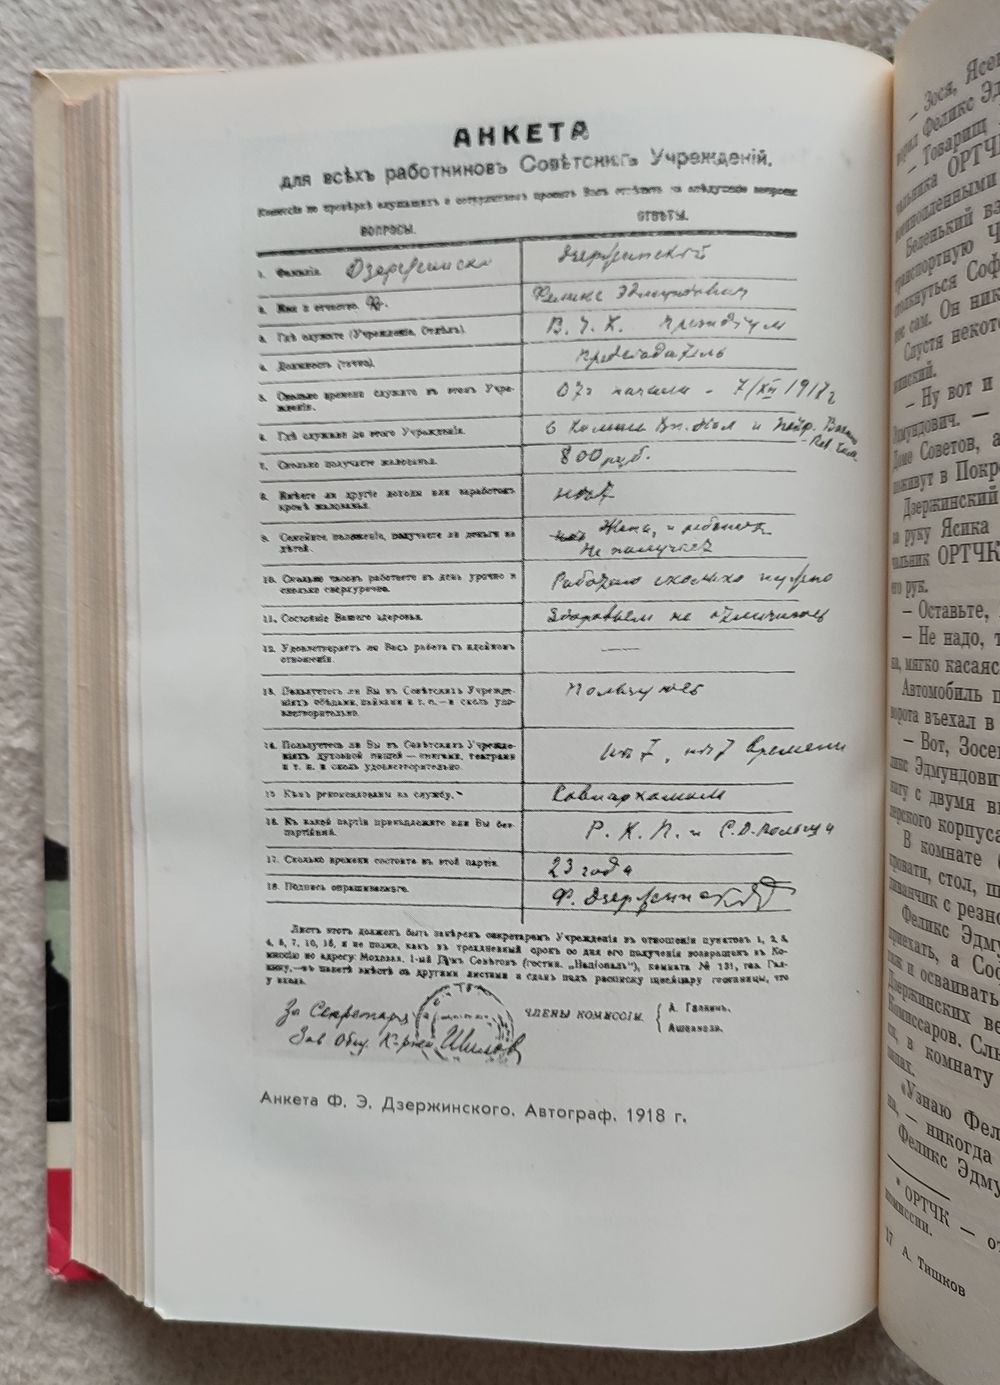 АНКЕТА
для всѣхъ работниковъ Совѣтскихъ Учрежденій.
Комиссія по провѣркѣ служащихъ и сотрудниковъ проситъ Васъ отвѣтить на слѣдующіе вопросы:
ВОПРОСЫ.
ОТВѢТЫ.
1. Фамилія. Дзержински
Дзержинский
2. Имя и отчество. Ф.
Феликс Эдмундович
3. Гдѣ служите (Учрежденіе, Отдѣлъ).
В. Ч. К. Президіум
4. Должность (точно).
Председатель
5. Сколько времени служите въ этомъ Учре-
жденіи.
От начала - 7/XII 1917 г
6. Гдѣ служили до этого Учрежденія.
7. Сколько получаете жалованья.
800 руб.
8. Имѣете ли другіе доходы или заработокъ
кромѣ жалованья.
нѣт
9. Семейное положеніе, получаете ли деньги на
дѣтей.
Жена, и ребенок
Не получает
10. Сколько часовъ работаете въ день урочно и
сколько сверхурочно.
Работаю сколько нужно
11. Состояніе Вашего здоровья.
Здоровьем не отличаюсь
12. Удовлетворяетъ ли Васъ работа съ идейномъ
отношеніи.
—
13. Пользуетесь ли Вы въ Совѣтскихъ Учрежде-
ніяхъ обѣдами, пайками и т. п. — и сколь удо-
влетворительно.
Пользуюсь
14. Пользуетесь ли Вы въ Совѣтскихъ Учрежде-
ніяхъ духовной пищей — книгами, театрами
и т. п. и сколь удовлетворительно.
Нѣт, нѣт времени
15. Кѣмъ рекомендованы на службу.
Совнаркомом
16. Къ какой партіи принадлежите или Вы без-
партійный.
Р. К. П. и С. Д. Польши
17. Сколько времени состоите въ этой партіи.
23 года
18. Подпись опрашиваемаго.
Ф. Дзержинский
Листъ этотъ долженъ быть завѣренъ секретаремъ Учрежденія въ отношеніи пунктовъ 1, 2, 3,
4, 5, 7, 10, 16, и не позже, какъ въ трехдневный срокъ со дня его полученія возвращенъ въ Ко-
миссію по адресу: Моховая, 1-ый Домъ Совѣтовъ (гостин. „Націоналъ"), комната № 131,
— въ пакетѣ вмѣстѣ съ другими листами и сданъ подъ расписку швейцару гостиницы, что
у входа.
За Секретаря
Зав Общ. К-рией Шилов
ЧЛЕНЫ КОМИССІИ.
А. Галкинъ.
Анкета Ф. Э. Дзержинского. Автограф. 1918 г.
— Зося, Ясе
ворил Феликс Эд
— Товарищ
чальника ОРТЧК
Беленький вз
транспортную Ч
столкнуться Соф
нес сам. Он ник
Спустя некото
жинский.
— Ну вот и
Эдмундович. —
Доме Советов, а
поживут в Покро
Дзержинский
за руку Ясика
чальник ОРТЧК
его рук.
— Оставьте,
— Не надо, т
ка, мягко касаяс
Автомобиль п
ворота въехал в
— Вот, Зосе
ликс Эдмундович
ногу с двумя в
лерского корпуса
В комнате
кровати, стол, ш
диванчик с резно
Феликс Эдму
приехать, а Соф
так и осваивать
Дзержинских ве
Комиссаров. Слы
ш, в комнату
«Узнаю Фел
на, — никогда
Феликс Эдму
* ОРТЧК — от
комиссии.
17 А. Тишков